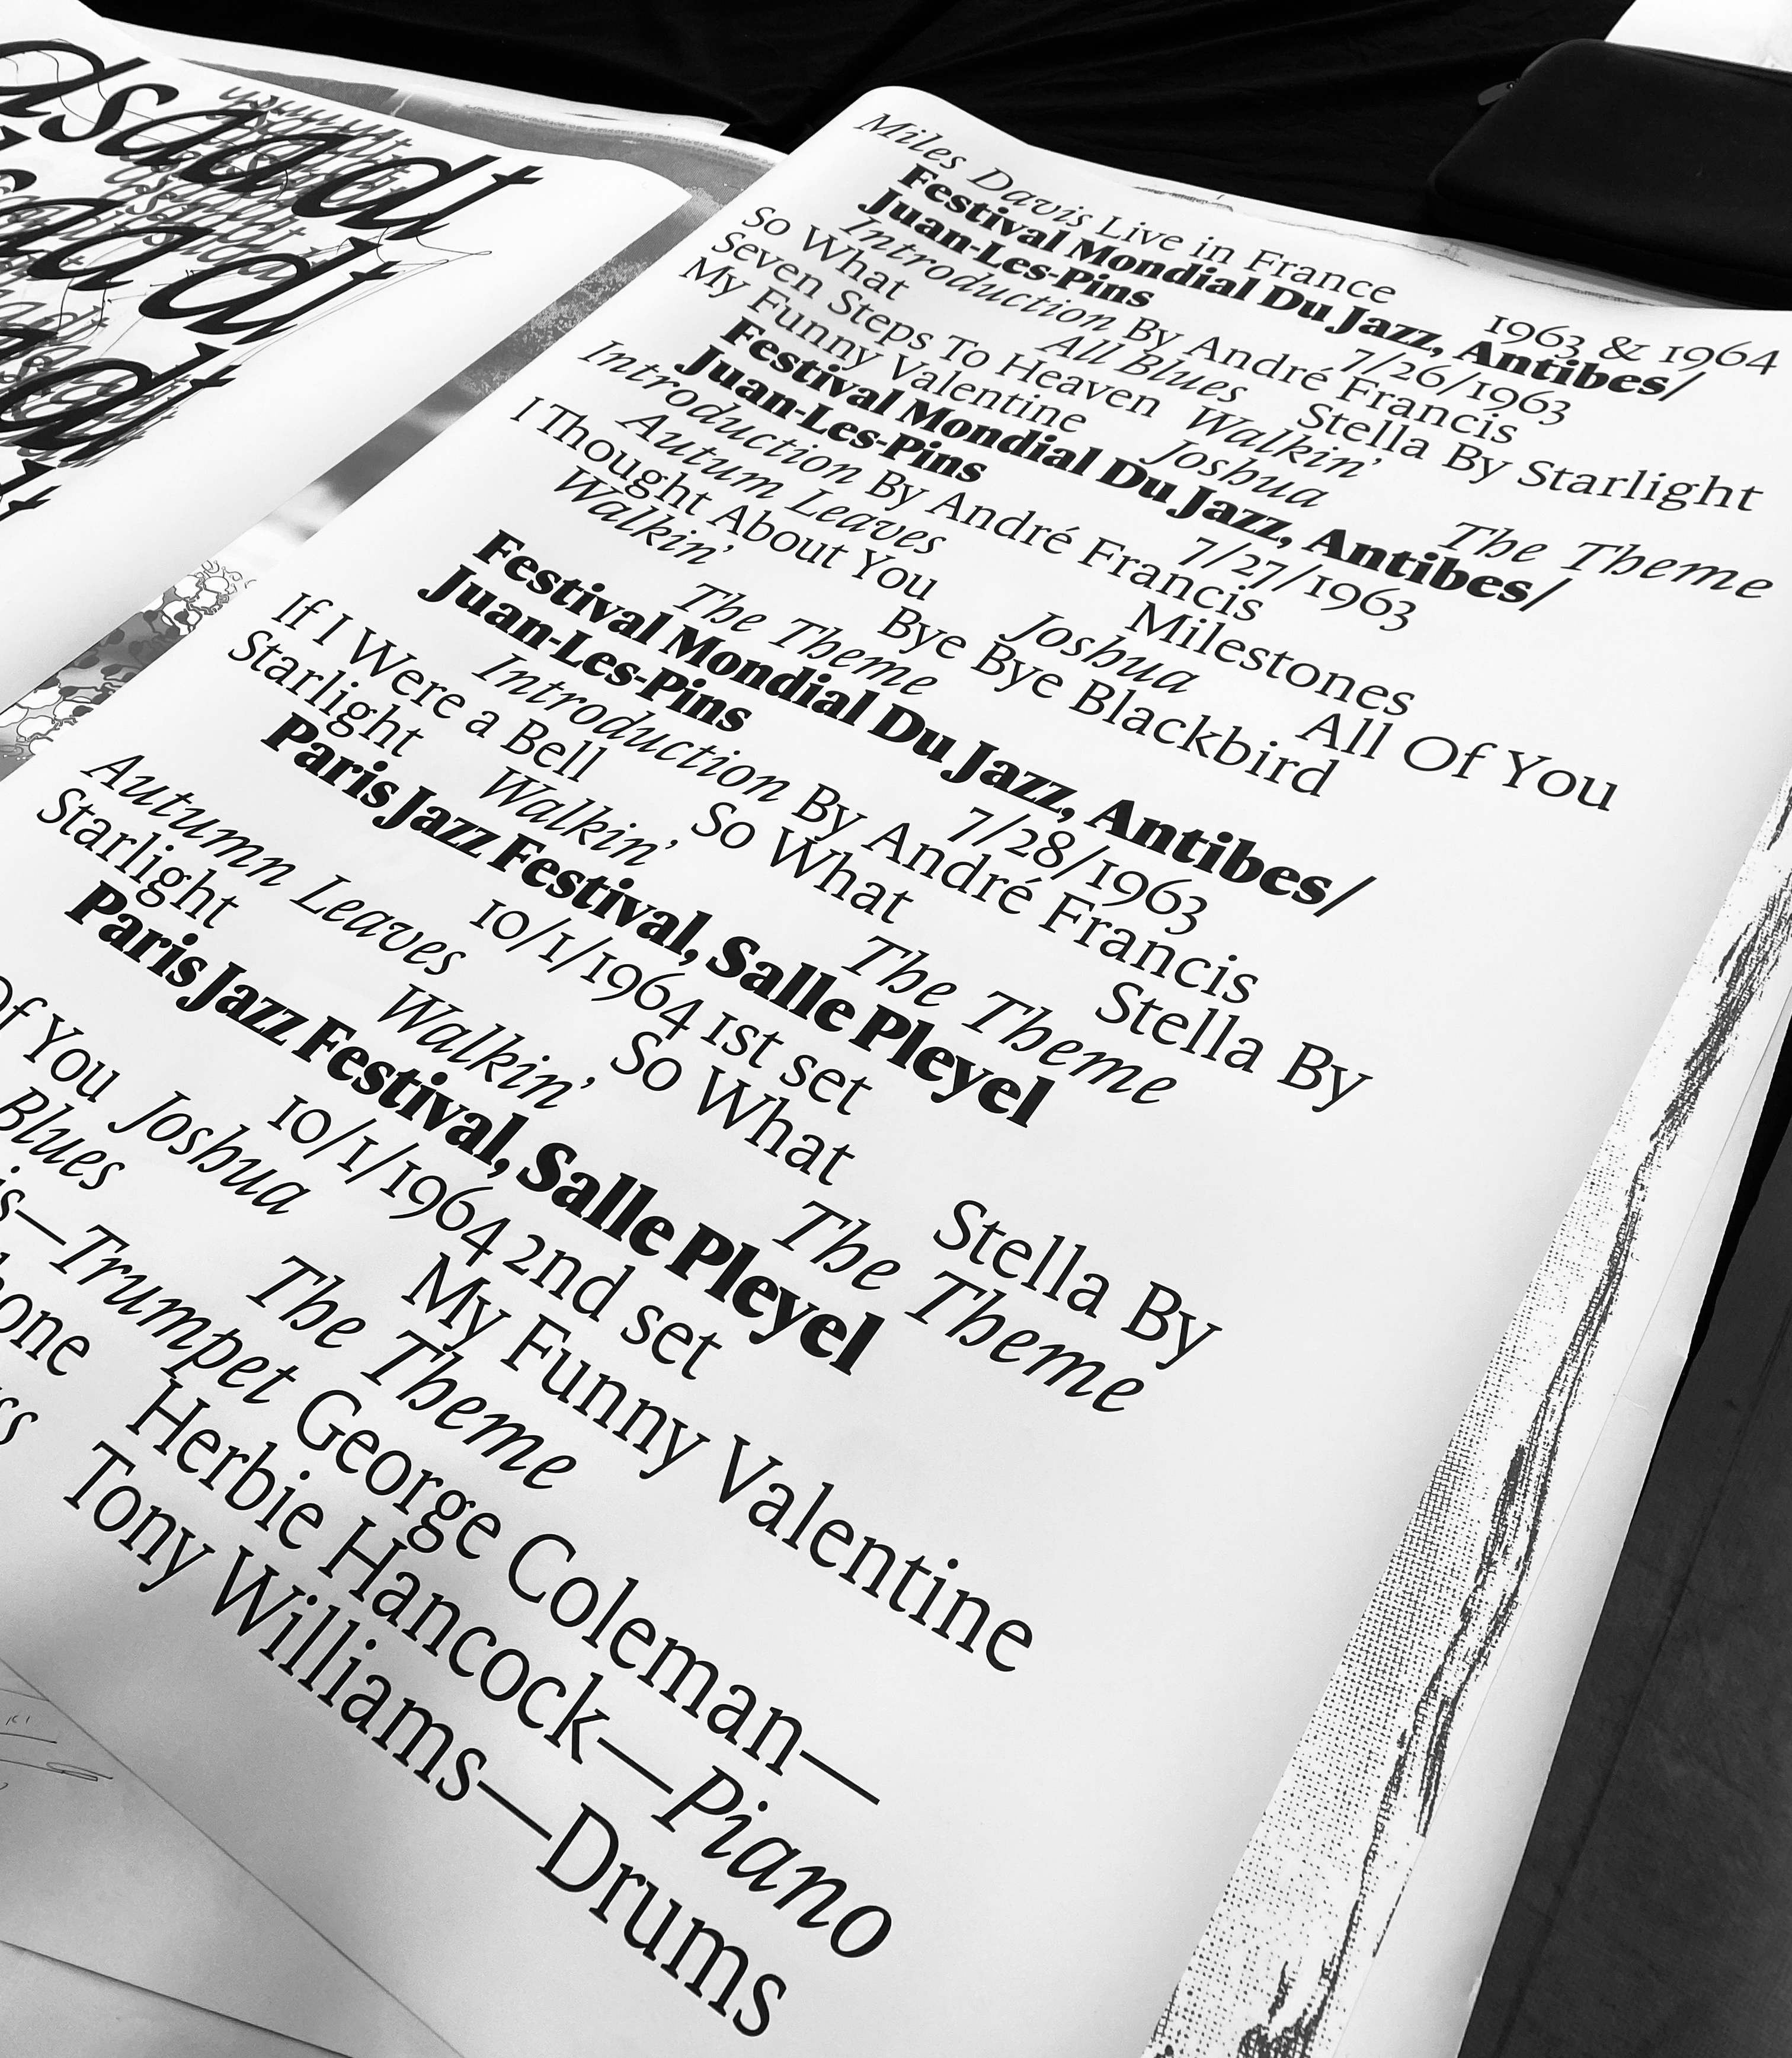 Miles Davis Live in France 1963 & 1964
Festival Mondial Du Jazz, Antibes/
Juan-Les-Pins 7/26/1963
Introduction By André Francis
So What All Blues Stella By Starlight
Seven Steps To Heaven Walkin’
My Funny Valentine Joshua The Theme
Festival Mondial Du Jazz, Antibes/
Juan-Les-Pins 7/27/1963
Introduction By André Francis
Autum Leaves Milestones
I Thought About You Joshua All Of You
Walkin’ Bye Bye Blackbird
The Theme
Festival Mondial Du Jazz, Antibes/
Juan-Les-Pins 7/28/1963
Introduction By André Francis
If I Were a Bell So What Stella By
Starlight Walkin’ The Theme
Paris Jazz Festival, Salle Pleyel
10/1/1964 1st set
Autumn Leaves So What Stella By
Starlight Walkin’ The Theme
Paris Jazz Festival, Salle Pleyel
10/1/1964 2nd set
Of You Joshua My Funny Valentine
Blues The Theme
—Trumpet George Coleman—
Herbie Hancock—Piano
Tony Williams—Drums